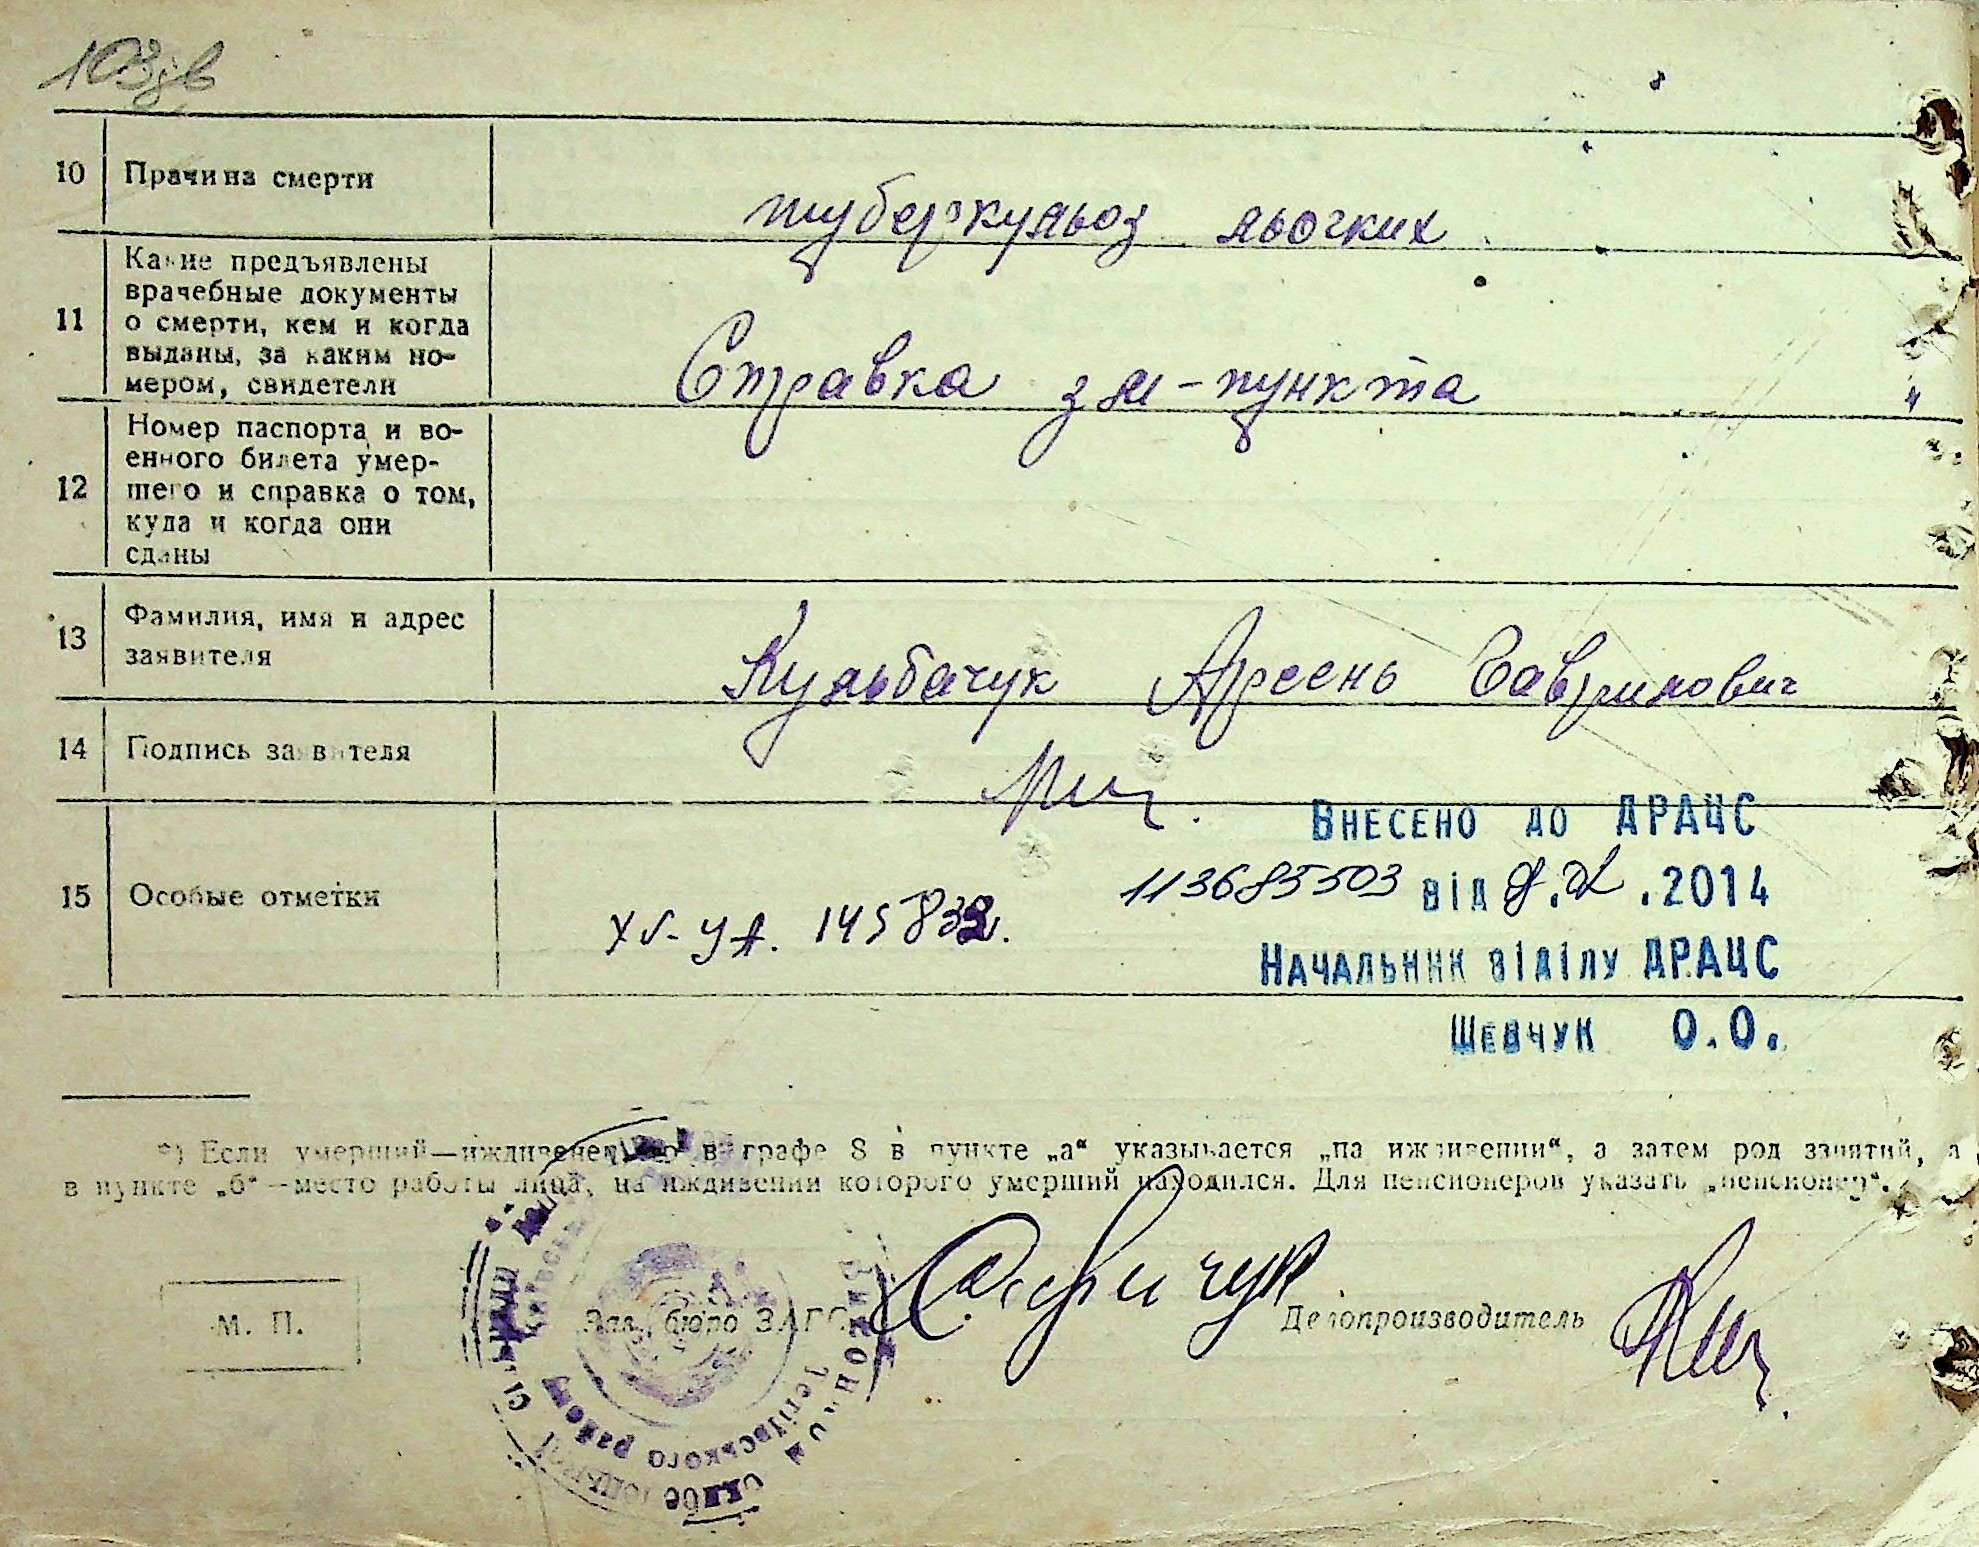 103зв
10 Причина смерти туберкульоз льогких
11 Какие предъявлены
врачебные документы
о смерти, кем и когда
выданы, за каким но-
мером, свидетели
Справка зд-пункта
12 Номер паспорта и во-
енного билета умер-
шего и справка о том,
куда и когда они
сданы
13 Фамилия, имя и адрес
заявителя
Кульбачук Арсень Гаврилович
14 Подпись заявителя
Внесено до ДРАЦС
113685503 від .2014
15 Особые отметки
145832.
Начальник відділу ДРАЦС
Шевчук О.О.
*) Если умерший—иждивенец, то в графе 8 в пункте „а“ указывается „на иждивении“, а затем род занятий, а
в пункте „б“—место работы лица, на иждивении которого умерший находился. Для пенсионеров указать „пенсионер“.
М. П.
Зав. бюро ЗАГС
Делопроизводитель
району